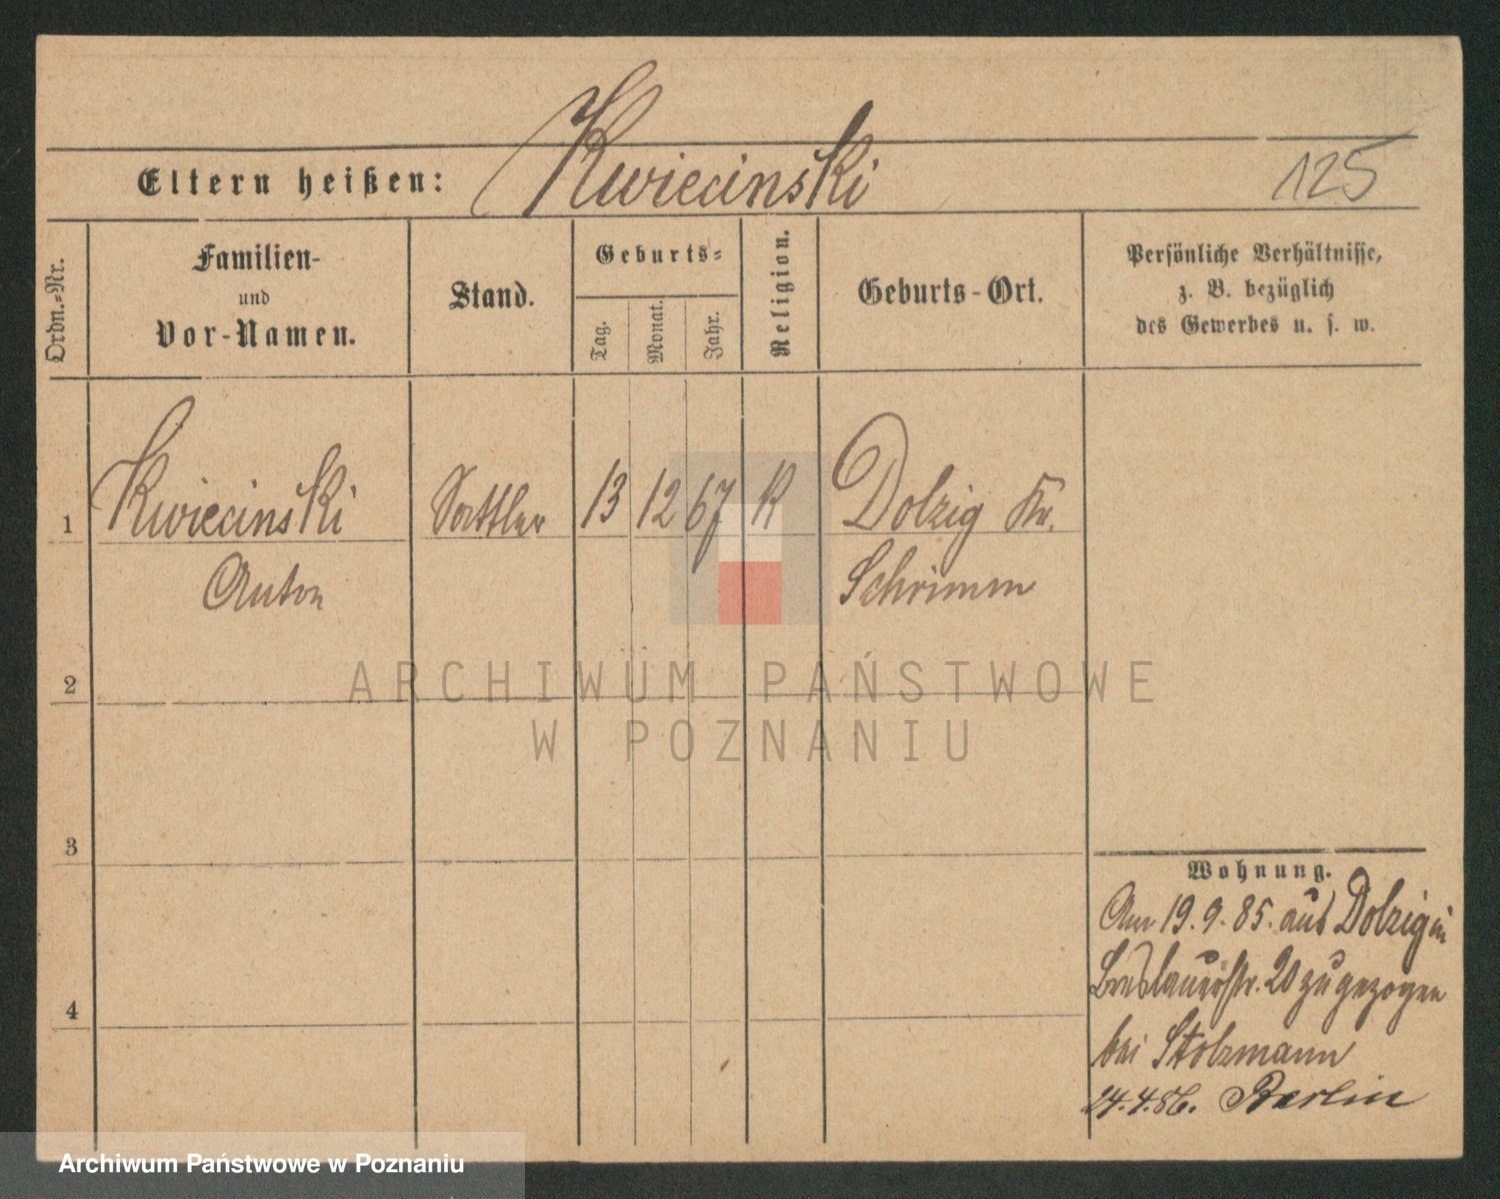 Kwiecinski
Eltern heißen:
125
Ordn.=Nr.
Familien-
und
Vor-Namen.
Stand.
Geburts=
Tag.
Monat.
Jahr.
Religion.
Geburts-Ort.
Persönliche Verhältnisse,
z. B. bezüglich
des Gewerbes u. s. w.
1 Kwiecinski Sattler 13 12 67 K Dolzig Kr.
Anton Schrimm
2
3
4
Wohnung.
Am 19.9.85. aus Dolzig in
Breslauerstr. 20 zugezogen
bei Stolzmann
24.4.86. Berlin
ARCHIWUM PAŃSTWOWE
W POZNANIU
Archiwum Państwowe w Poznaniu